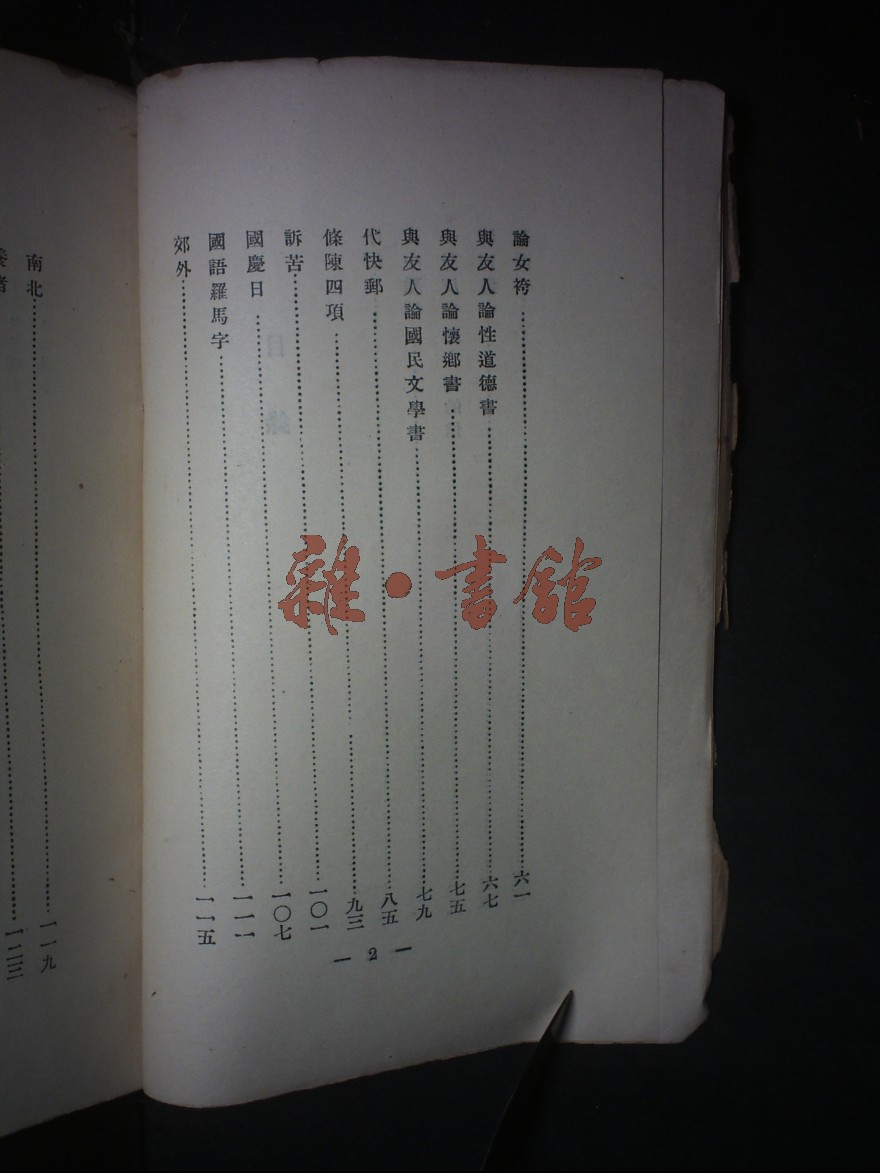 論女袴……六一
與友人論性道德書……六七
與友人論懷鄉書……七五
與友人論國民文學書……七九
代快郵……八五
條陳四項……九三
訴苦……一〇一
國慶日……一〇七
國語羅馬字……一一一
郊外……一一五
— 2 —
南北……一一九
養者……一二三
雜·書館